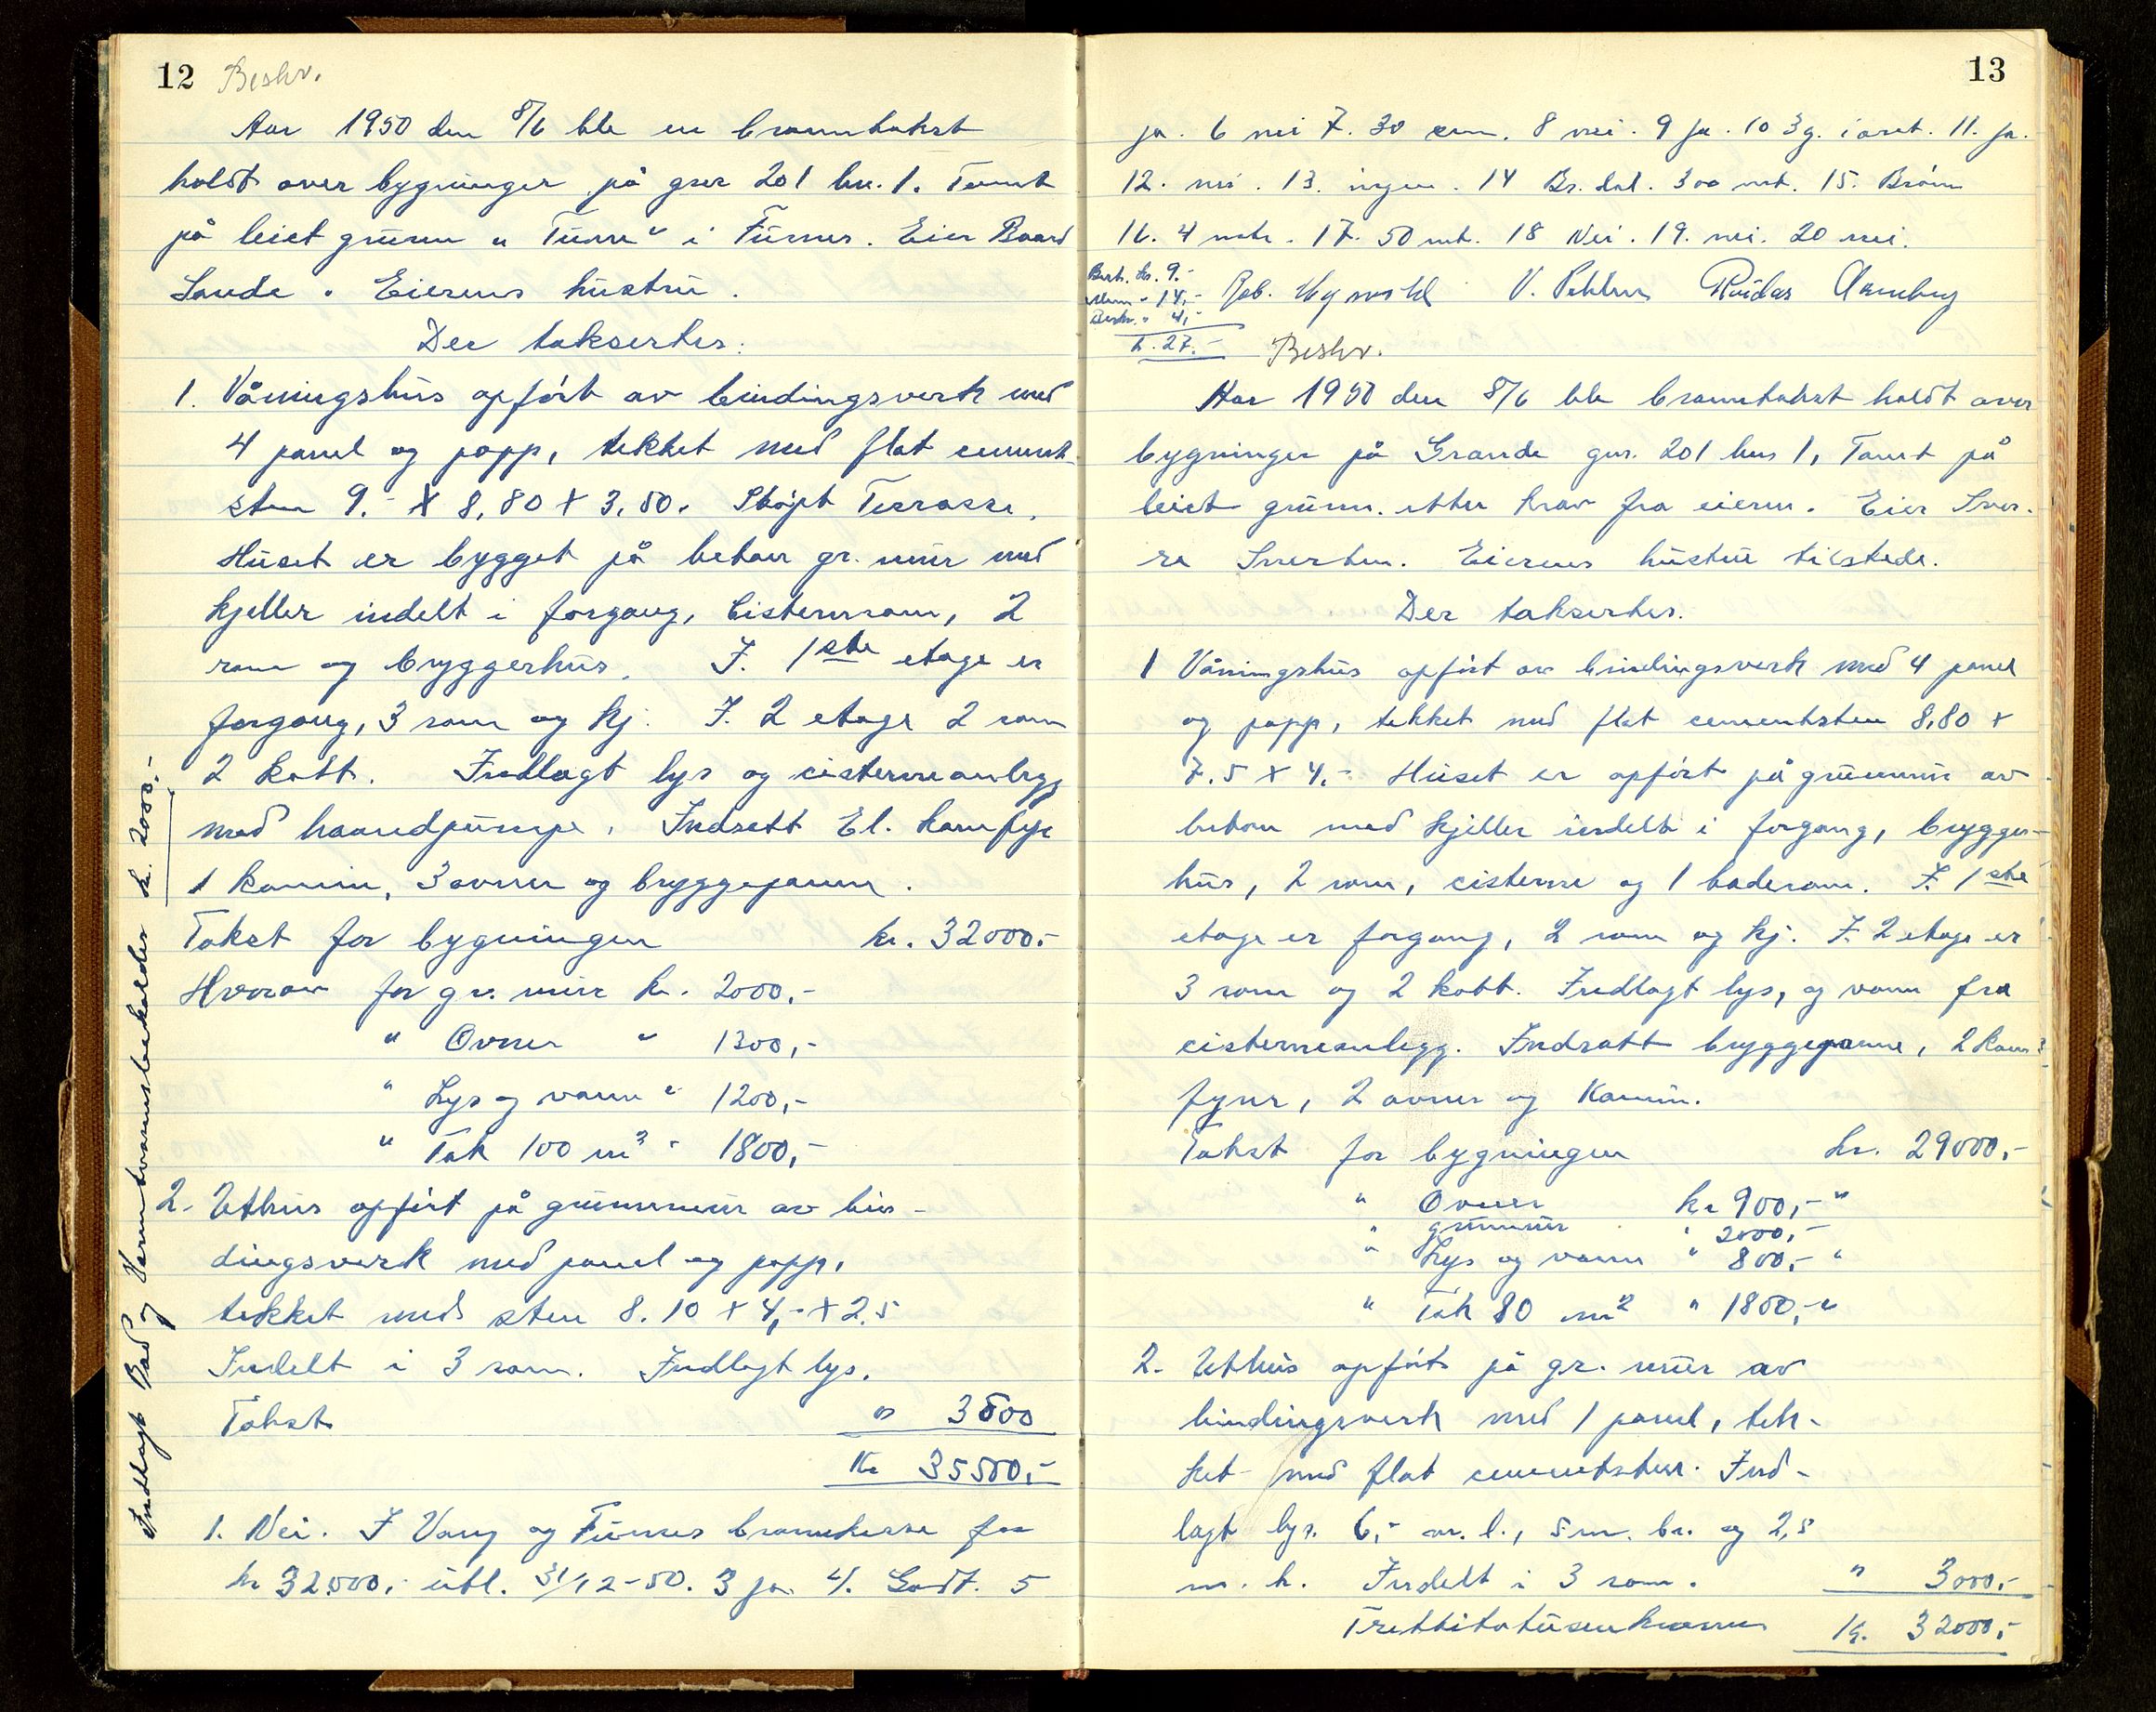 12 Beskr.
Aar 1950 den 8/6 ble en branntakst
holdt over bygninger på gnr 201 bn. 1. Tomt
på leiet grunn " Tunre" i Furnes. Eier Baard
Sande. Eierens hustru.
Der taksertes:
1. Våningshus opført av bindingsverk med
4 panel og papp, tekket med flat cement-
sten 9.- X 8,80 X 3,50. Støpt Terrasse.
Huset er bygget på betong gr. mur med
kjeller indelt i forgang, Cisternrom, 2
rom og bryggerhus. I. 1ste etage er
forgang, 3 rom og kj. I. 2 etage 2 rom
2 kott. Indlagt lys og cisterneanlegg
med haandpumpe. Indsatt El. komfyr
1 kamin, 3 ovner og bryggepanne.
Takst for bygningen kr. 32000.-
Hvorav for gr. mur kr. 2000,-
" Ovner " 1300,-
" Lys og vann " 1200,-
" Tak 100 m2 " 1800,-
2. Uthus opført på grunnmur av bin-
dingsverk med panel og papp,
tekket med sten 8.10 X 4,- X 2.5
Indelt i 3 rom. Indlagt lys.
Takst " 3500
Kr 35500,-
1. Nei. I Vang og Furnes brannkasse for
kr 32.000,- utl. 31/12-50. 3 ja 4. Godt. 5
Indlagt Bad og Varmtvannsbeholder kr. 2000.-
13
ja. 6 nei 7. 30 cm. 8 nei. 9 Ja. 10 3 g. i aaret. 11. ja.
12. nei. 13. ingen. 14 Br. dal. 300 mt. 15. Brønn
16. 4 mtr. 17. 50 mt. 18 Nei. 19. nei. 20 nei.
Best. kr. 9.-
" 14,-
Beskr. " 4,-
k. 27.-
V. Reidar
Beskr.
Aar 1950 den 8/6 ble branntakst holdt over
bygninger på Grande gnr. 201 bnr 1, Tomt på
leiet grunn. etter krav fra eieren. Eier Sver-
re Eierens hustru tilstede.
Der taksertes.
1 Våningshus opført av bindingsverk med 4 panel
og papp, tekket med flat cementsten 8,80 X
7.5 X 4.- Huset er opført på grunnmur av
betong med kjeller indelt i forgang, brygger-
hus, 2 rom, cisterne og 1 baderom. I. 1ste
etage er forgang, 2 rom og kj. I. 2 etage er
3 rom og 2 kott. Indlagt lys, og vann fra
cisterneanlegg. Indsatt bryggepanne, 2 kom-
fyrer, 2 ovner og Kamin.
Takst for bygningen kr. 29000,-
" Ovner kr 900,- "
" grunmur " 2000,-
" Lys og vann " 800,- "
" Tak 80 m2 " 1800,- "
2. Uthus opført på gr. mur av
bindingsverk med 1 panel, tek-
ket med flat cementsten. Ind-
lagt lys. 6,- m. l., 5 m. br. og 2,5
m. h. Indelt i 3 rom. " 3000,-
Trettitotusenkroner Kr. 32000,-